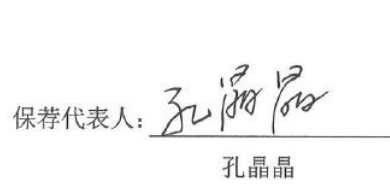 保荐代表人：孔晶晶
孔晶晶